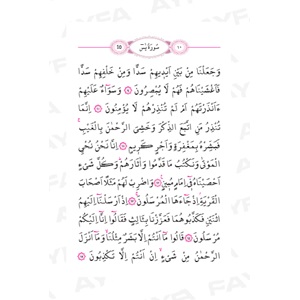 10 سورة يس ١٠
وَجَعَلْنَا مِنْ بَيْنِ اَيْدِيهِمْ سَدًّا وَمِنْ خَلْفِهِمْ سَدًّا
فَاَغْشَيْنَاهُمْ فَهُمْ لَا يُبْصِرُونَ وَسَوَآءٌ عَلَيْهِمْ
ءَاَنْذَرْتَهُمْ اَمْ لَمْ تُنْذِرْهُمْ لَا يُؤْمِنُونَ اِنَّمَا
تُنْذِرُ مَنِ اتَّبَعَ الذِّكْرَ وَخَشِيَ الرَّحْمٰنَ بِالْغَيْبِ
فَبَشِّرْهُ بِمَغْفِرَةٍ وَاَجْرٍ كَرِيمٍ اِنَّا نَحْنُ نُحْيِ
الْمَوْتٰى وَنَكْتُبُ مَا قَدَّمُوا وَاٰثَارَهُمْ وَكُلَّ شَيْءٍ
اَحْصَيْنَاهُ فِي اِمَامٍ مُبِينٍ وَاضْرِبْ لَهُمْ مَثَلًا اَصْحَابَ
الْقَرْيَةِ اِذْ جَآءَهَا الْمُرْسَلُونَ اِذْ اَرْسَلْنَا اِلَيْهِمُ
اثْنَيْنِ فَكَذَّبُوهُمَا فَعَزَّزْنَا بِثَالِثٍ فَقَالُوا اِنَّا اِلَيْكُمْ
مُرْسَلُونَ قَالُوا مَا اَنْتُمْ اِلَّا بَشَرٌ مِثْلُنَا وَمَا اَنْزَلَ
الرَّحْمٰنُ مِنْ شَيْءٍ اِنْ اَنْتُمْ اِلَّا تَكْذِبُونَ